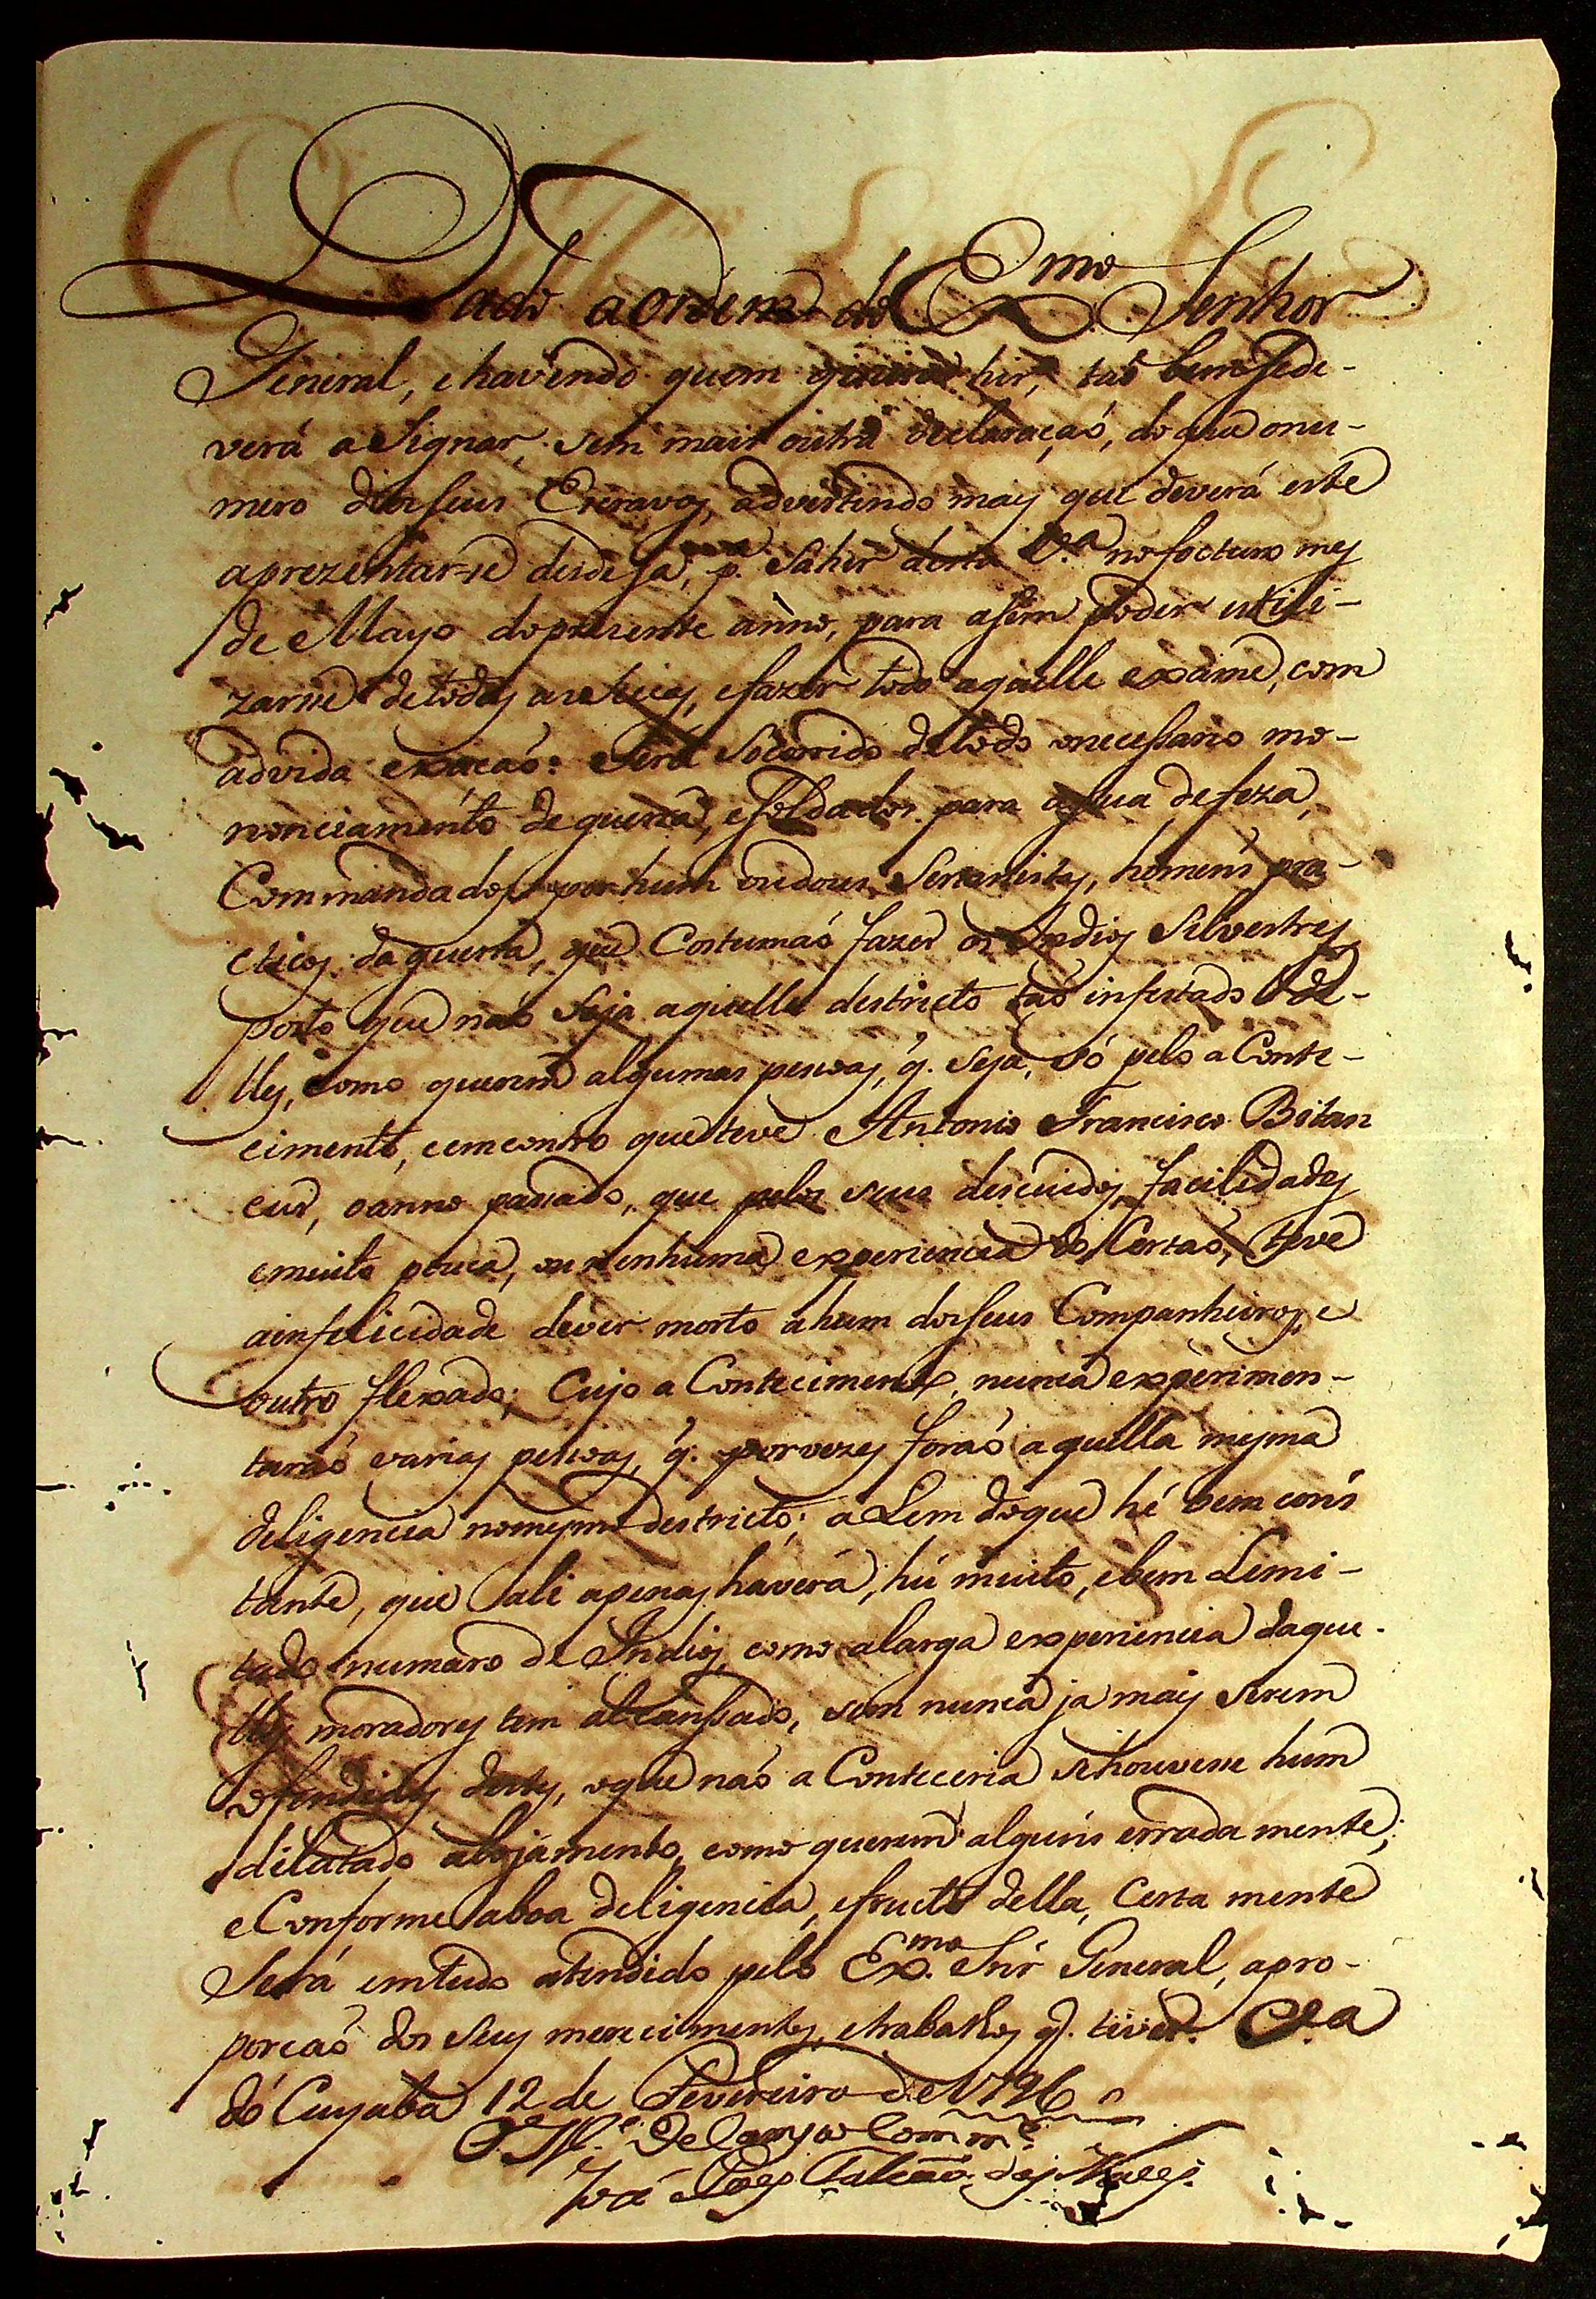 a ordem do Ex.mo Senhor
General, e havendo quem queira hir, taõ bem se de-
verá a Signar, sem mais outra declaraçaõ, do que o nu-
mero dos seus Escravos, advertindo mais que deverá este
aprezentar-se p.a Sahir desta V.a no focturo mes
de Mayo do prezente anno, para asim poder utili-
zarse de todas as secas, e fazer todo aquelle exáme, com
advida exaçaõ: e Será Socorrido de todo onecessario mo-
niciamento de guerra, e Soldados para a sua defeza,
Commandados por hum ou dous Sertanistas, homens pra-
cticos da guerra, que Costumaõ fazer os Indios Silvestres
posto que naõ Seja aquelle destricto taõ infestado de-
lles, como querem algumas pesoas, q. Seja, só pelo a Conte-
cimento, e emcontro que teve Antonio Francisco Bitan
cur, o anno passado, que pelos seus descuidos, facilidades
e muito pouca, ou nenhuma experiencia do Certaõ, teve
ainfelicidade dever morto a hum dos seus Companheiros, e
outro flexado; Cujo a Contecimento, nunca experimen-
taraõ varias pesoas, q. por vezes foraõ a quella mesma
deligencia no mesmo destricto; a Lem do que hé bem cons
tante, que ali apenas haverá, hú muito, e bem Limi-
tado numaro de Indios, como a larga experiencia daque-
lles moradores tem alcanssado, sem nunca ja mais serem
ofendidos destes, o que naõ a Conteceria se houvesse hum
dilatado alojamento, como querem alguns errada mente;
e Conforme a boa deligencia, e fructo della, Certa mente
Será em tudo atendido pelo Ex.mo Snr General, a pro-
porcaõ dos Seus merecimentos, e trabalhos q. tiver. V.a
do Cuyaba 12 de Fevereiro de 1796
O M.e De Campo Comm.e
Joze Paes Falcaõ das Neves